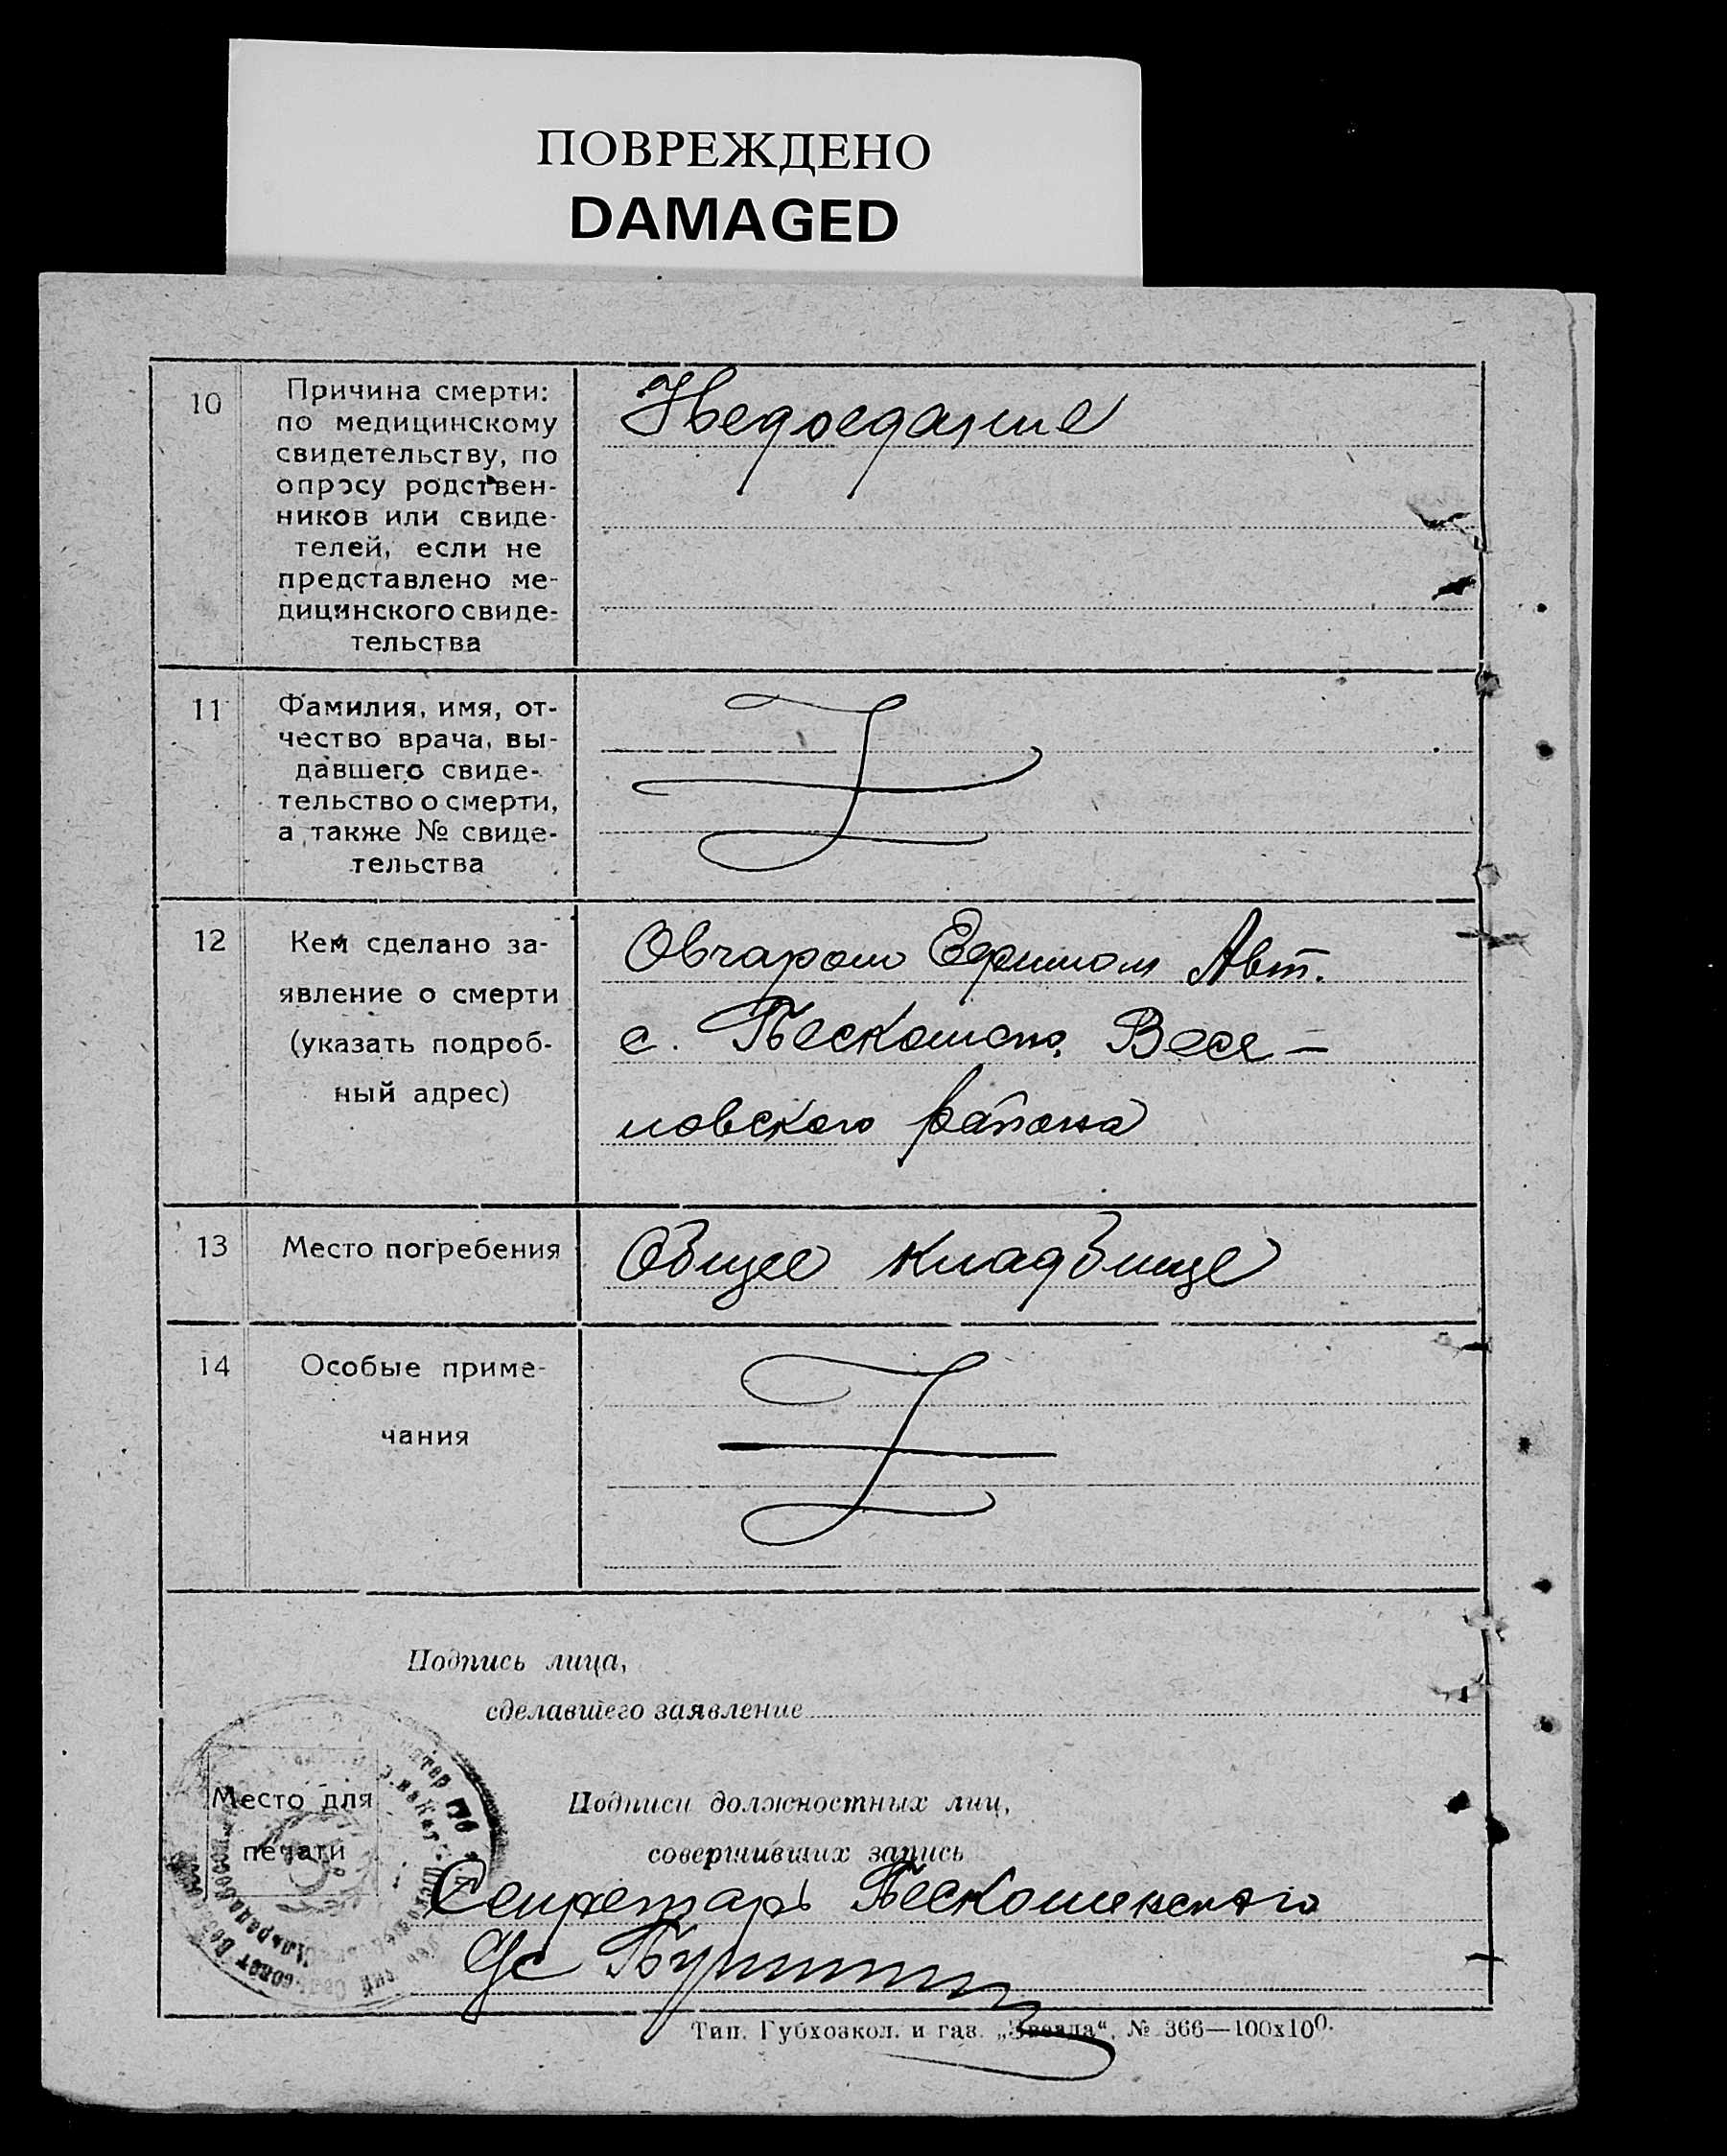 ПОВРЕЖДЕНО
DAMAGED
10
Причина смерти:
по медицинскому
свидетельству, по
опросу родствен-
ников или свиде-
телей, если не
представлено ме-
дицинского свиде-
тельства
Недоедание
11
Фамилия, имя, от-
чество врача, вы-
давшего свиде-
тельство о смерти,
а также № свиде-
тельства
12
Кем сделано за-
явление о смерти
(указать подроб-
ный адрес)
Овчаром Ефимом Авт.
с. Бескошено, Весе-
ловского района
13
Место погребения
Общее кладбище
14
Особые приме-
чания
Подпись лица,
сделавшего заявление
Место для
печати
Подписи должностных лиц,
совершивших запись
Секретарь Бескошенского
Тип. Губхозкол. и газ. „Звезда“, № 366—100х100.